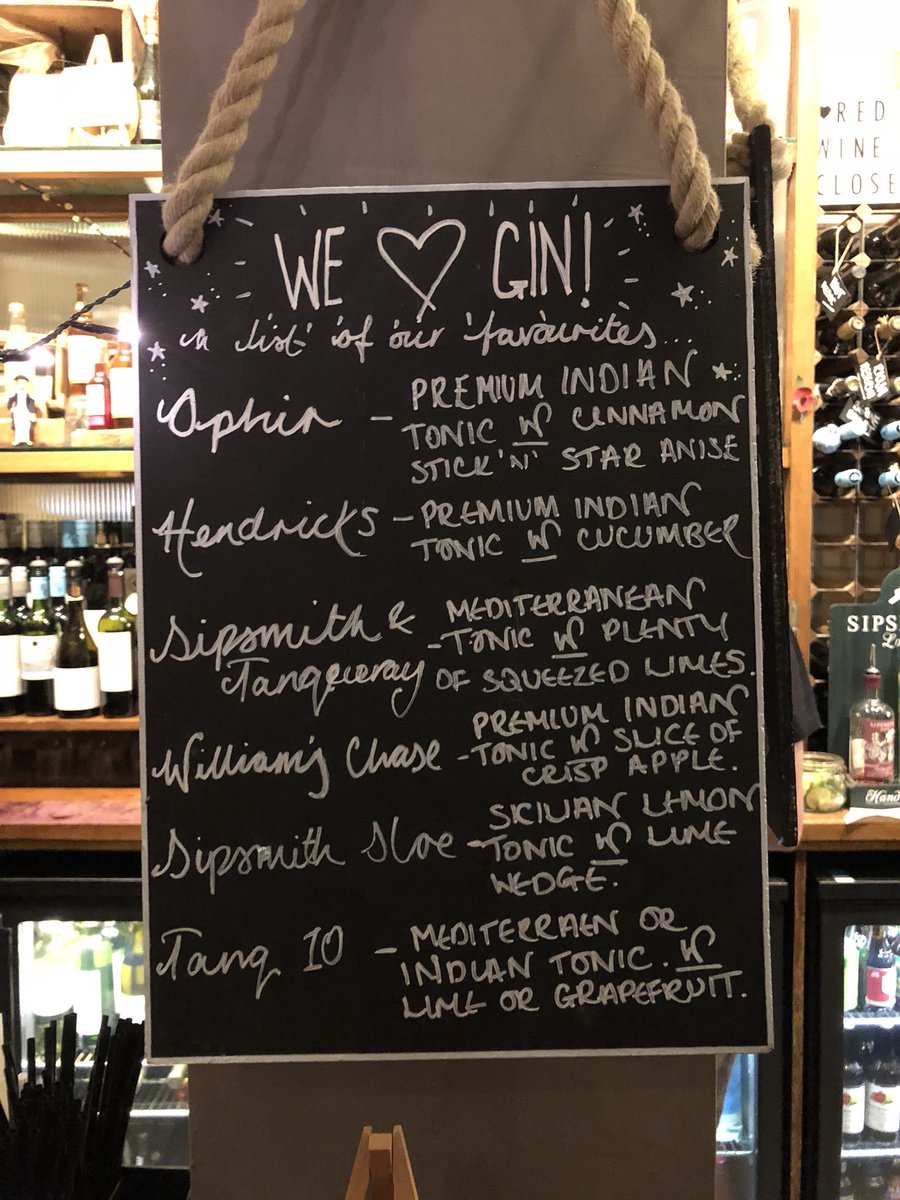 WE ♡ GIN!
a list of our favourites...
Ophir - PREMIUM INDIAN
TONIC W CINNAMON
STICK 'N' STAR ANISE
Hendricks - PREMIUM INDIAN
TONIC W CUCUMBER
Sipsmith & MEDITERRANEAN
Tanqueray - TONIC W PLENTY
OF SQUEEZED LIMES.
William's Chase - PREMIUM INDIAN
TONIC W SLICE OF
CRISP APPLE.
Sipsmith Sloe - SICILIAN LEMON
TONIC W LIME
WEDGE.
Tanq 10 - MEDITERRAEN OR
INDIAN TONIC. W
LIME OR GRAPEFRUIT.
♥RED
WINE
CLOSE
SIPS
Hand